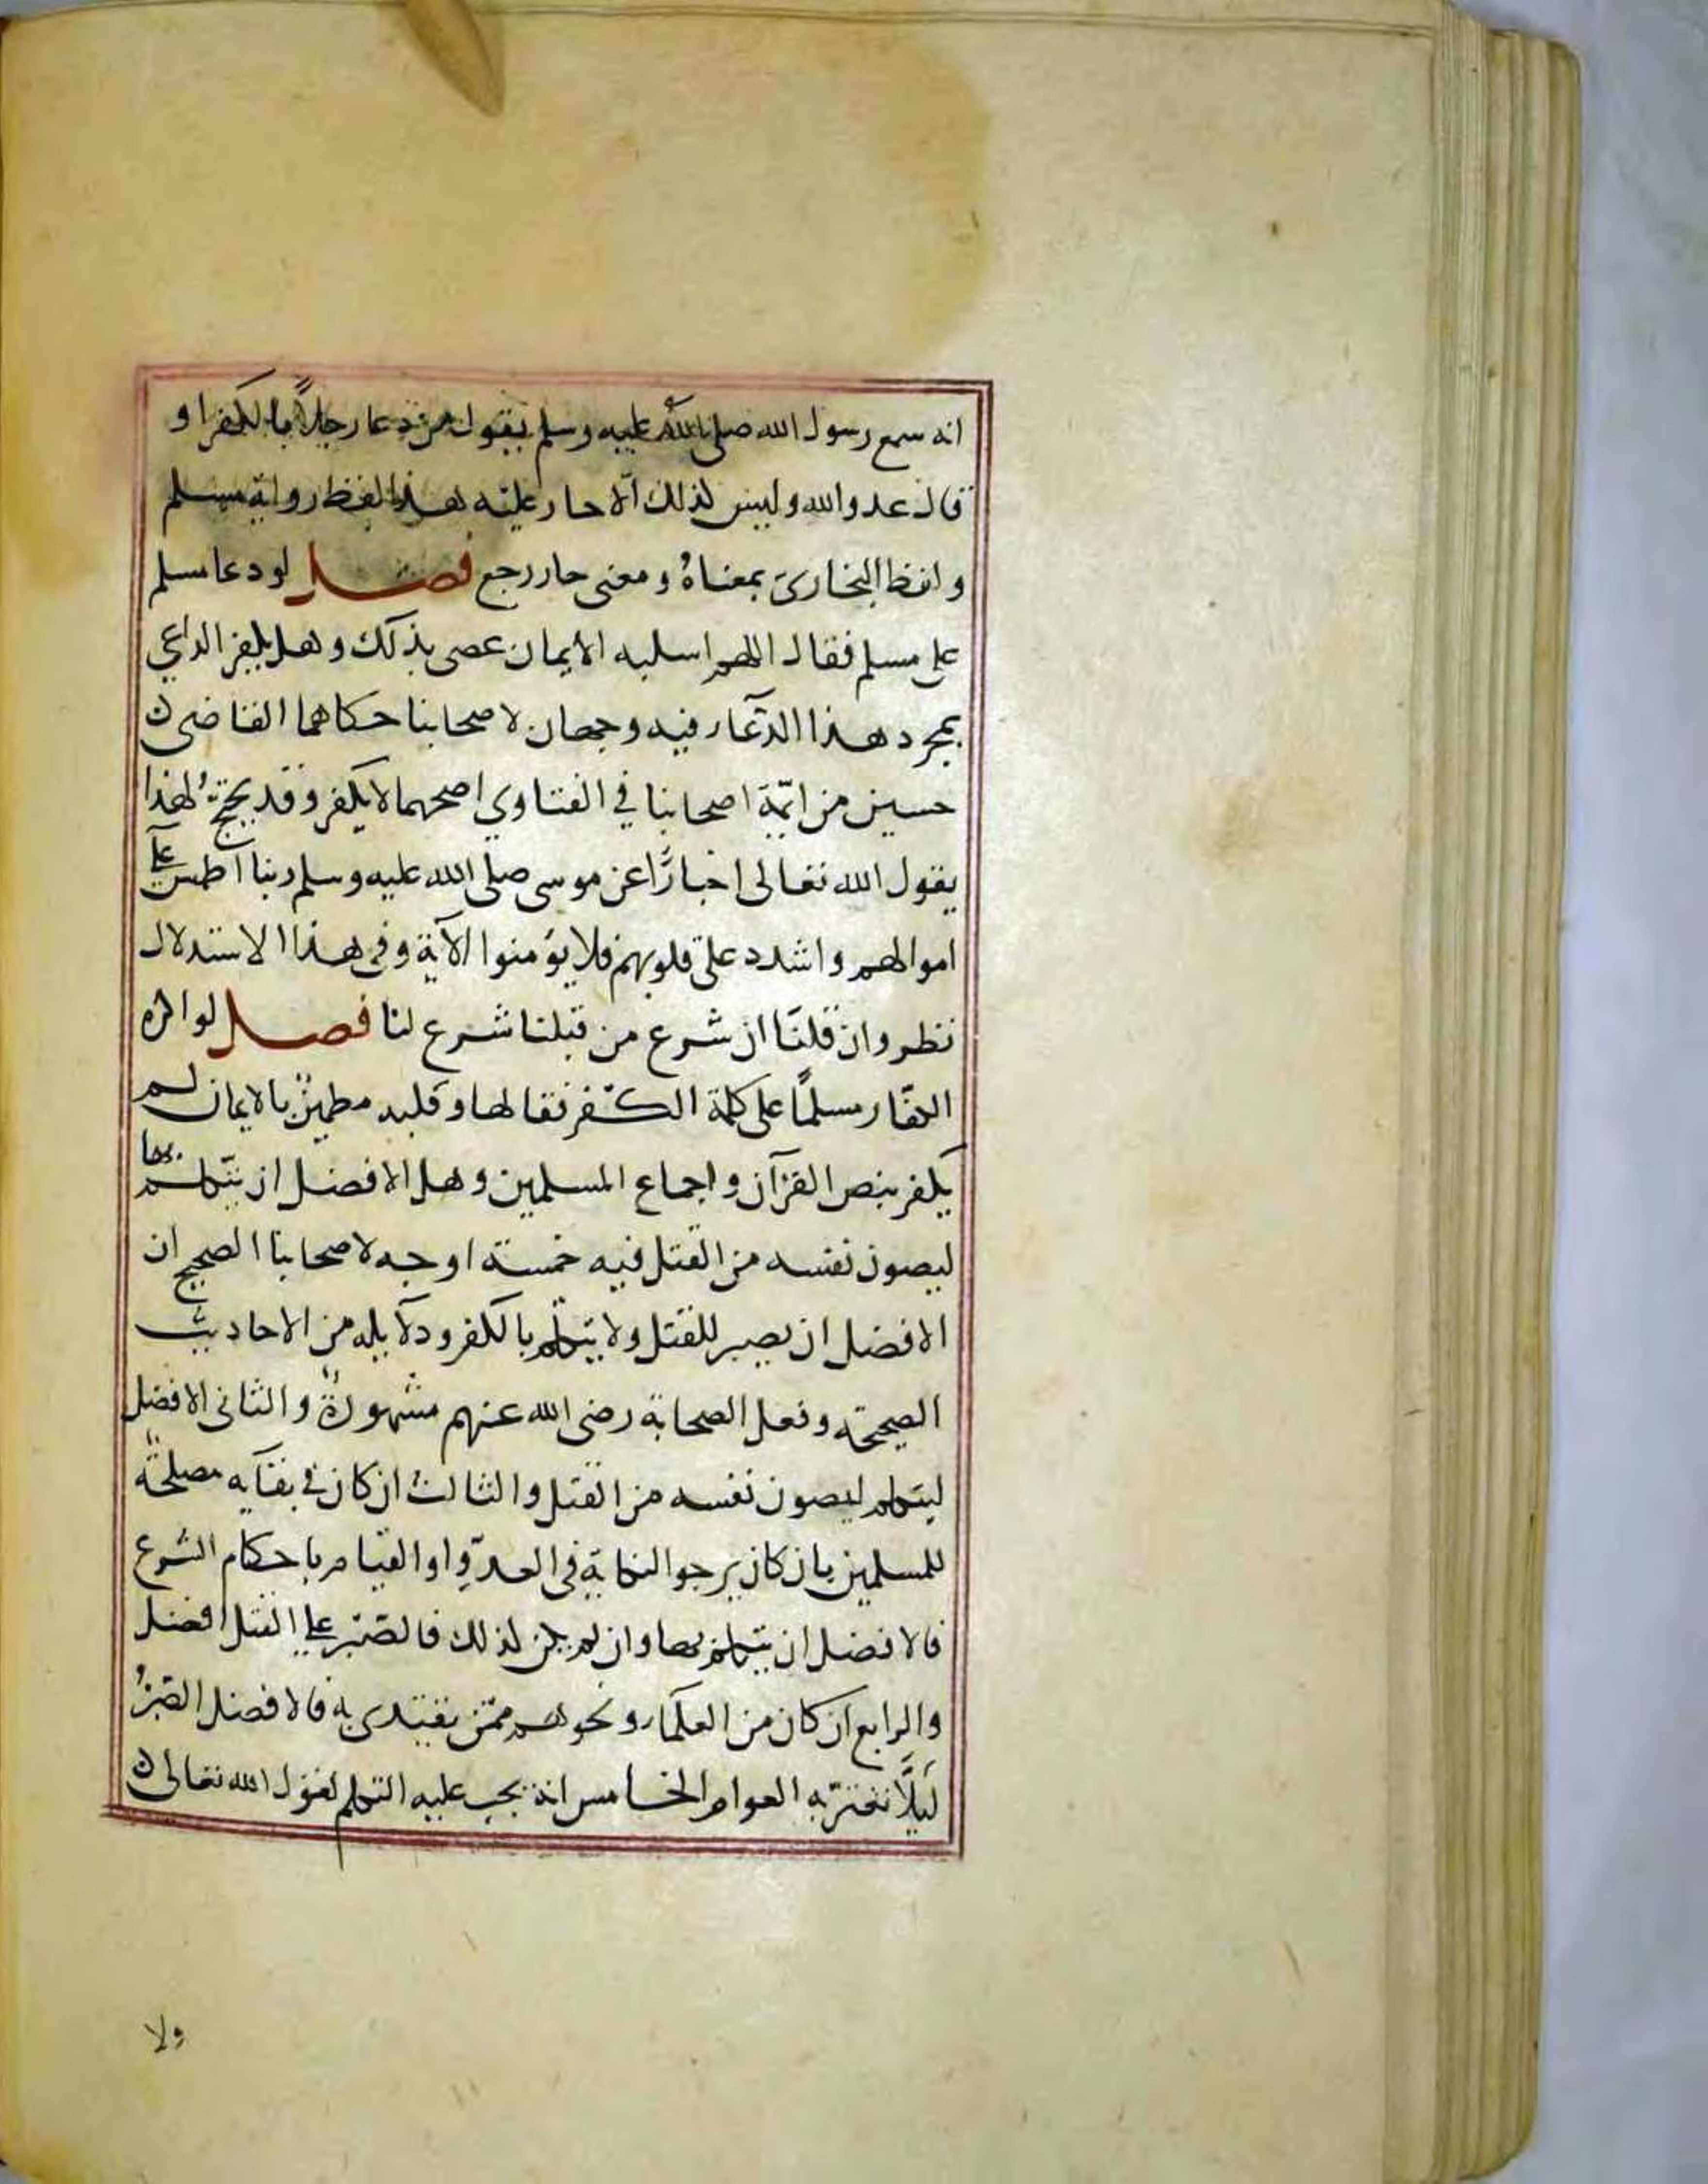 انه سمع رسول الله صلى الله عليه وسلم يقول من دعا رجلاً بالكفر او
قال عدو الله وليس لذلك الّا حار عليه هذا لفظ رواية مسلم
ولفظ البخاري بمعناهُ ومعنى حار رجع فصل لو دعا مسلم
على مسلم فقال اللهم اسلبه الايمان عصى بذلك وهل يكفر الداعي
بمجرد هذا الدّعاء فيه وجهان لاصحابنا حكاهما القاضى
حسين من ايمّة اصحابنا في الفتاوي اصحهما لا يكفر وقد يحتج لهذا
بقول الله تعالى اخبارًا عن موسى صلى الله عليه وسلم ربنا اطمس على
اموالهم واشدد على قلوبهم فلا يؤمنوا الآية وفى هذا الاستدلال
نظر وان قلنا ان شرع من قبلنا شرع لنا فصل لو اكره
الكفّار مسلمًا على كلمة الكفر فقالها وقلبه مطمئن بالايمان لم
يكفر بنص القرآن واجماع المسلمين وهل الافضل ان يتكلم بها
ليصون نفسه من القتل فيه خمسة اوجه لاصحابنا الصحيح ان
الافضل ان يصبر للقتل ولا يتكلم بالكفر ودلايله من الاحاديث
الصحيحة وفعل الصحابة رضى الله عنهم مشهورة والثانى الافضل
ليتكلم ليصون نفسه من القتل والثالث ان كان في بقآيه مصلحة
للمسلمين بان كان يرجو النكاية فى العدوّ او القيام باحكام الشرع
فالافضل ان يتكلم بها وان لم يكن لذلك فالصّبر على القتل افضل
والرابع ان كان من العلمآء ونحوهم ممّن يقتدى به فالافضل الصّبرُ
ليلّا تغترّ به العوام الخامس انه يجب عليه التكلم لقول الله تعالى
ولا